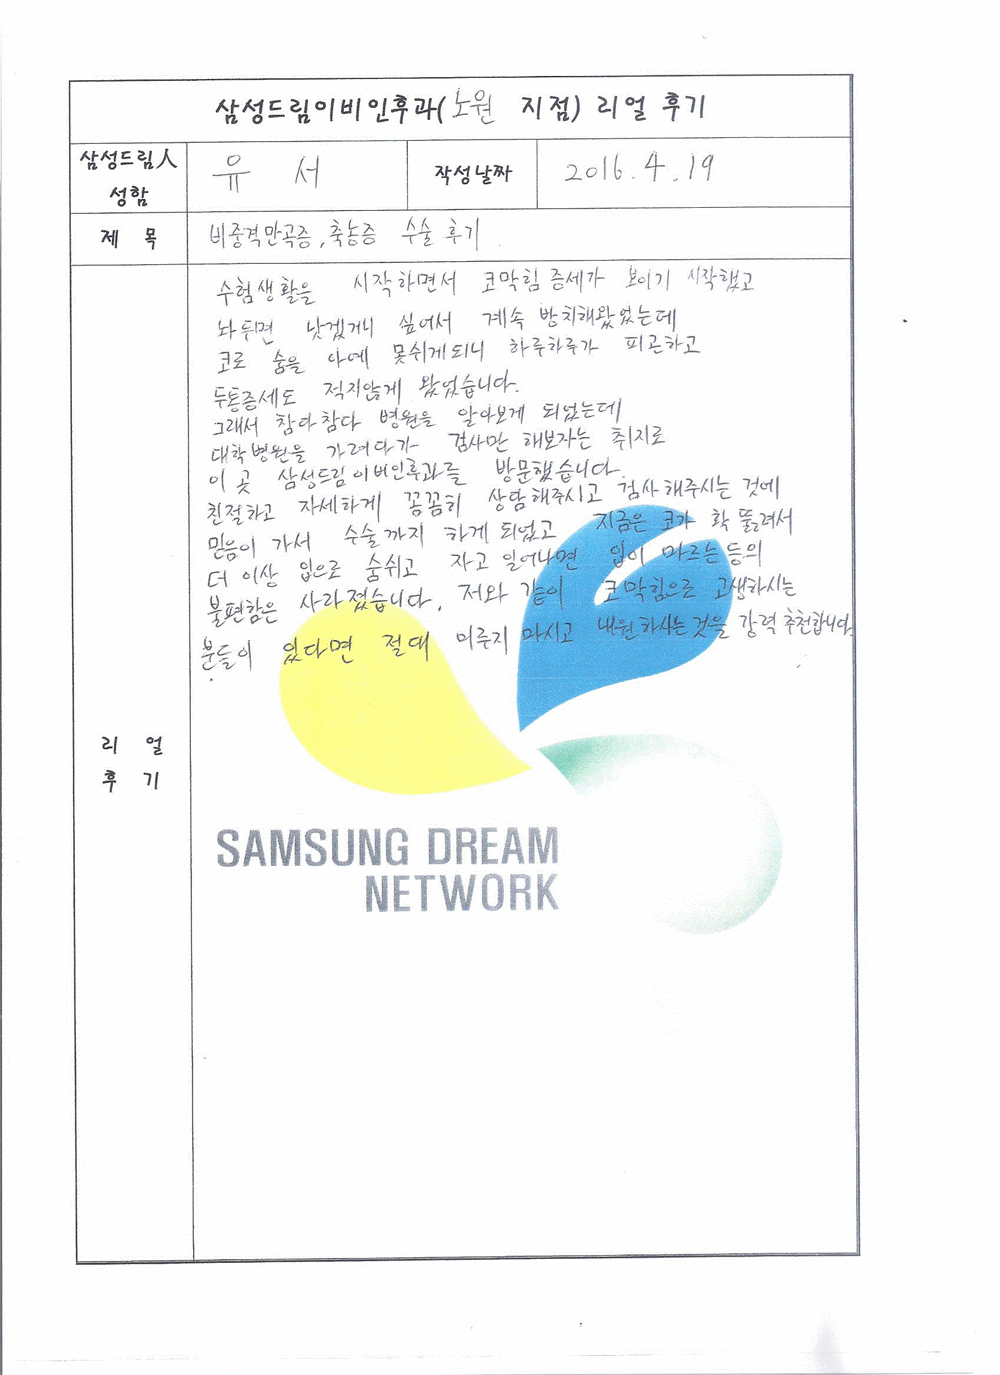 삼성드림이비인후과(노원 지점) 리얼 후기
삼성드림人 성함
유 서
작성날짜
2016.4.19
제 목
비중격만곡증, 축농증 수술 후기
수험생활을 시작하면서 코막힘 증세가 보이기 시작했고
놔두면 낫겠거니 싶어서 계속 방치해왔었는데
코로 숨을 아예 못쉬게되니 하루하루가 피곤하고
두통증세도 적지않게 왔었습니다.
그래서 참다참다 병원을 알아보게 되었는데
대학병원을 가려다가 검사만 해보자는 취지로
이 곳 삼성드림이비인후과를 방문했습니다.
친절하고 자세하게 꼼꼼히 상담해주시고 검사해주시는 것에
믿음이 가서 수술까지 하게 되었고 지금은 코가 확 뚫려서
더 이상 입으로 숨쉬고 자고 일어나면 입이 마르는 등의
불편함은 사라졌습니다. 저와 같이 코막힘으로 고생하시는
분들이 있다면 절대 미루지 마시고 내원하시는 것을 강력 추천합니다.
리 얼
후 기
SAMSUNG DREAM
NETWORK